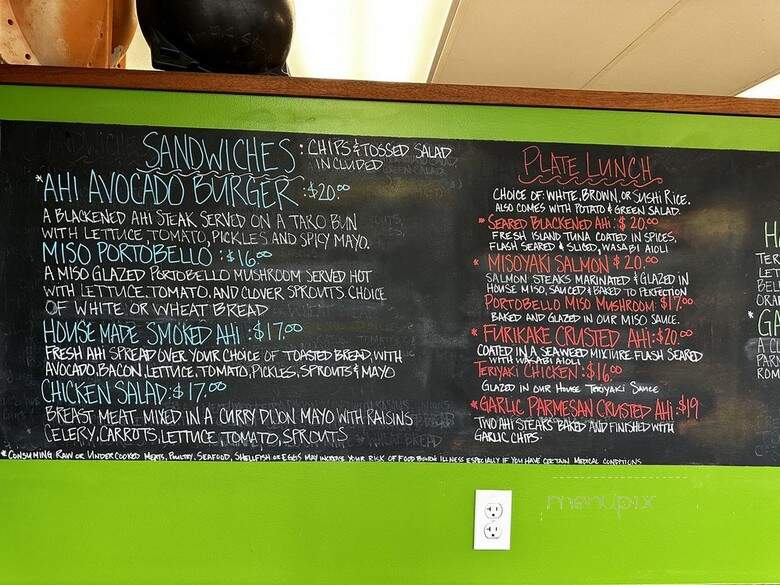 SANDWICHES : CHIPS & TOSSED SALAD
INCLUDED
*AHI AVOCADO BURGER : $20.00
A BLACKENED AHI STEAK SERVED ON A TARO BUN
WITH LETTUCE, TOMATO, PICKLES AND SPICY MAYO.
MISO PORTOBELLO : $16.00
A MISO GLAZED PORTOBELLO MUSHROOM SERVED HOT
WITH LETTUCE, TOMATO, AND CLOVER SPROUTS. CHOICE
OF WHITE OR WHEAT BREAD
HOUSE MADE SMOKED AHI : $17.00
FRESH AHI SPREAD OVER YOUR CHOICE OF TOASTED BREAD, WITH
AVOCADO, BACON, LETTUCE, TOMATO, PICKLES, SPROUTS & MAYO
CHICKEN SALAD : $17.00
BREAST MEAT MIXED IN A CURRY DIJON MAYO WITH RAISINS
CELERY, CARROTS, LETTUCE, TOMATO, SPROUTS
PLATE LUNCH
CHOICE OF: WHITE, BROWN, OR SUSHI RICE.
ALSO COMES WITH POTATO & GREEN SALAD.
* SEARED BLACKENED AHI : $20.00
FRESH ISLAND TUNA COATED IN SPICES,
FLASH SEARED & SLICED, WASABI AIOLI
* MISOYAKI SALMON $20.00
SALMON STEAKS MARINATED & GLAZED IN
HOUSE MISO, SAUCED & BAKED TO PERFECTION
PORTOBELLO MISO MUSHROOM: $17.00
BAKED AND GLAZED IN OUR MISO SAUCE.
* FURIKAKE CRUSTED AHI: $20.00
COATED IN A SEAWEED MIXTURE FLASH SEARED
WITH WASABI AIOLI
TERIYAKI CHICKEN : $16.00
GLAZED IN OUR HOUSE TERIYAKI SAUCE
* GARLIC PARMESAN CRUSTED AHI : $19
TWO AHI STEAKS BAKED AND FINISHED WITH
GARLIC CHIPS.
H
TER
LET
BEL
ORA
* GA
A CL
PAR
ROM
* CONSUMING RAW OR UNDERCOOKED MEATS, POULTRY, SEAFOOD, SHELLFISH OR EGGS MAY INCREASE YOUR RISK OF FOOD BORNE ILLNESS ESPECIALLY IF YOU HAVE CERTAIN MEDICAL CONDITIONS
menupix